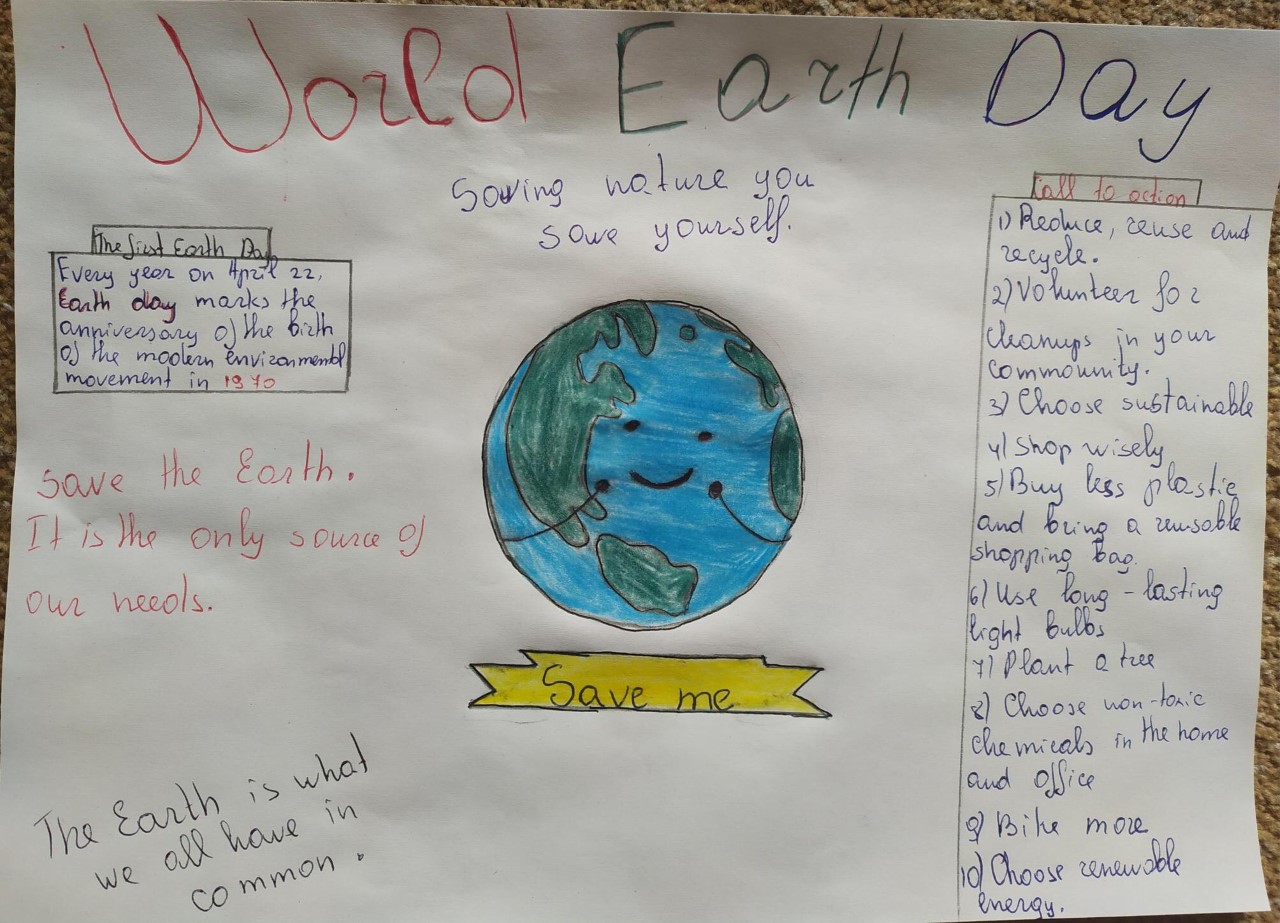 World Earth Day
Saving nature you
save yourself.
The first Earth Day
Every year on April 22,
Earth day marks the
anniversary of the birth
of the modern environmental
movement in 1970
Save the Earth.
It is the only source of
our needs.
The Earth is what
we all have in
common.
Save me
Call to action
1) Reduce, reuse and
recycle.
2) Volunteer for
cleanups in your
community.
3) Choose sustainable
4) Shop wisely
5) Buy less plastic
and bring a reusable
shopping bag.
6) Use long-lasting
light bulbs
7) Plant a tree
8) Choose non-toxic
chemicals in the home
and office
9) Bike more
10) Choose renewable
energy.